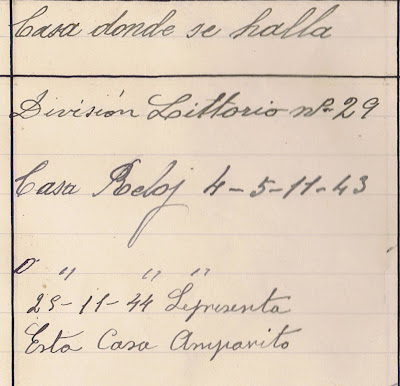 Casa donde se halla
División Littorio nº 29
Casa Reloj 4-5-11-43
D " " "
29-11-44 Lepresenta
Esta Casa Amparito